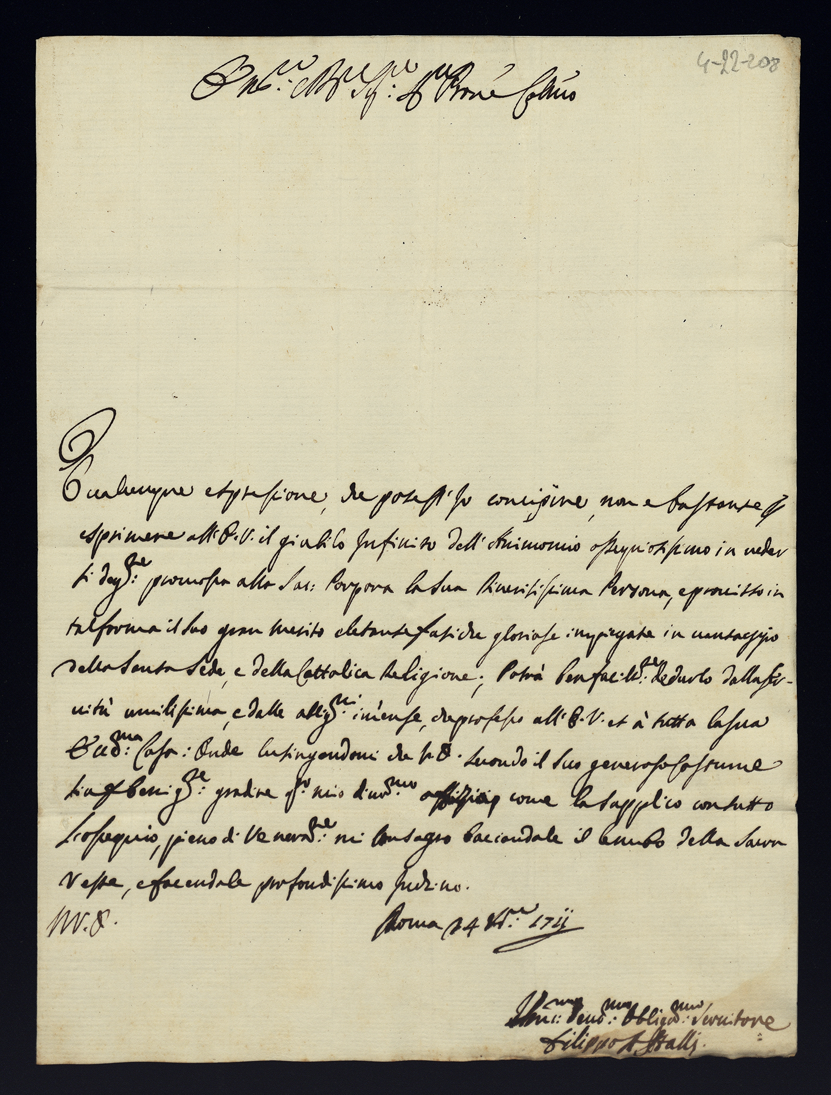 4-22-208
Em.mo e R.mo Sig.re P.rone Col.mo
Qualunque espressione, che potess' io concipire, non è bastante p
esprimere all' E.V. il giubilo infinito dell' Animo mio ossequiosissimo in veder
si deg.te promossa alla Sac: Porpora la sua Riveritissima Persona, e
tal forma il suo gran merito e le tante fatiche gloriose impiegate in vantaggio
della Santa Sede, e della Cattolica Religione; Potrà ben facilm.te dedurlo dalla ser-
vitù umilissima, e dalle obblig.ni immense, che professo all' E.V. et à tutta la sua
Ecc.ma Casa: Onde lusingandomi che V.E. secondo il suo generoso Costume
sia p benig.te gradire q.to mio divot.mo offizio, come la supplico con tutto
l'ossequio, pieno di Veneraz.ne mi consagro baciandole il lembo della Sacra
Veste, e facendole profondissimo inchino.
Di V.E.
Roma 24 1711
Um.mo Devo.mo Obligat.mo Servitore
Filippo